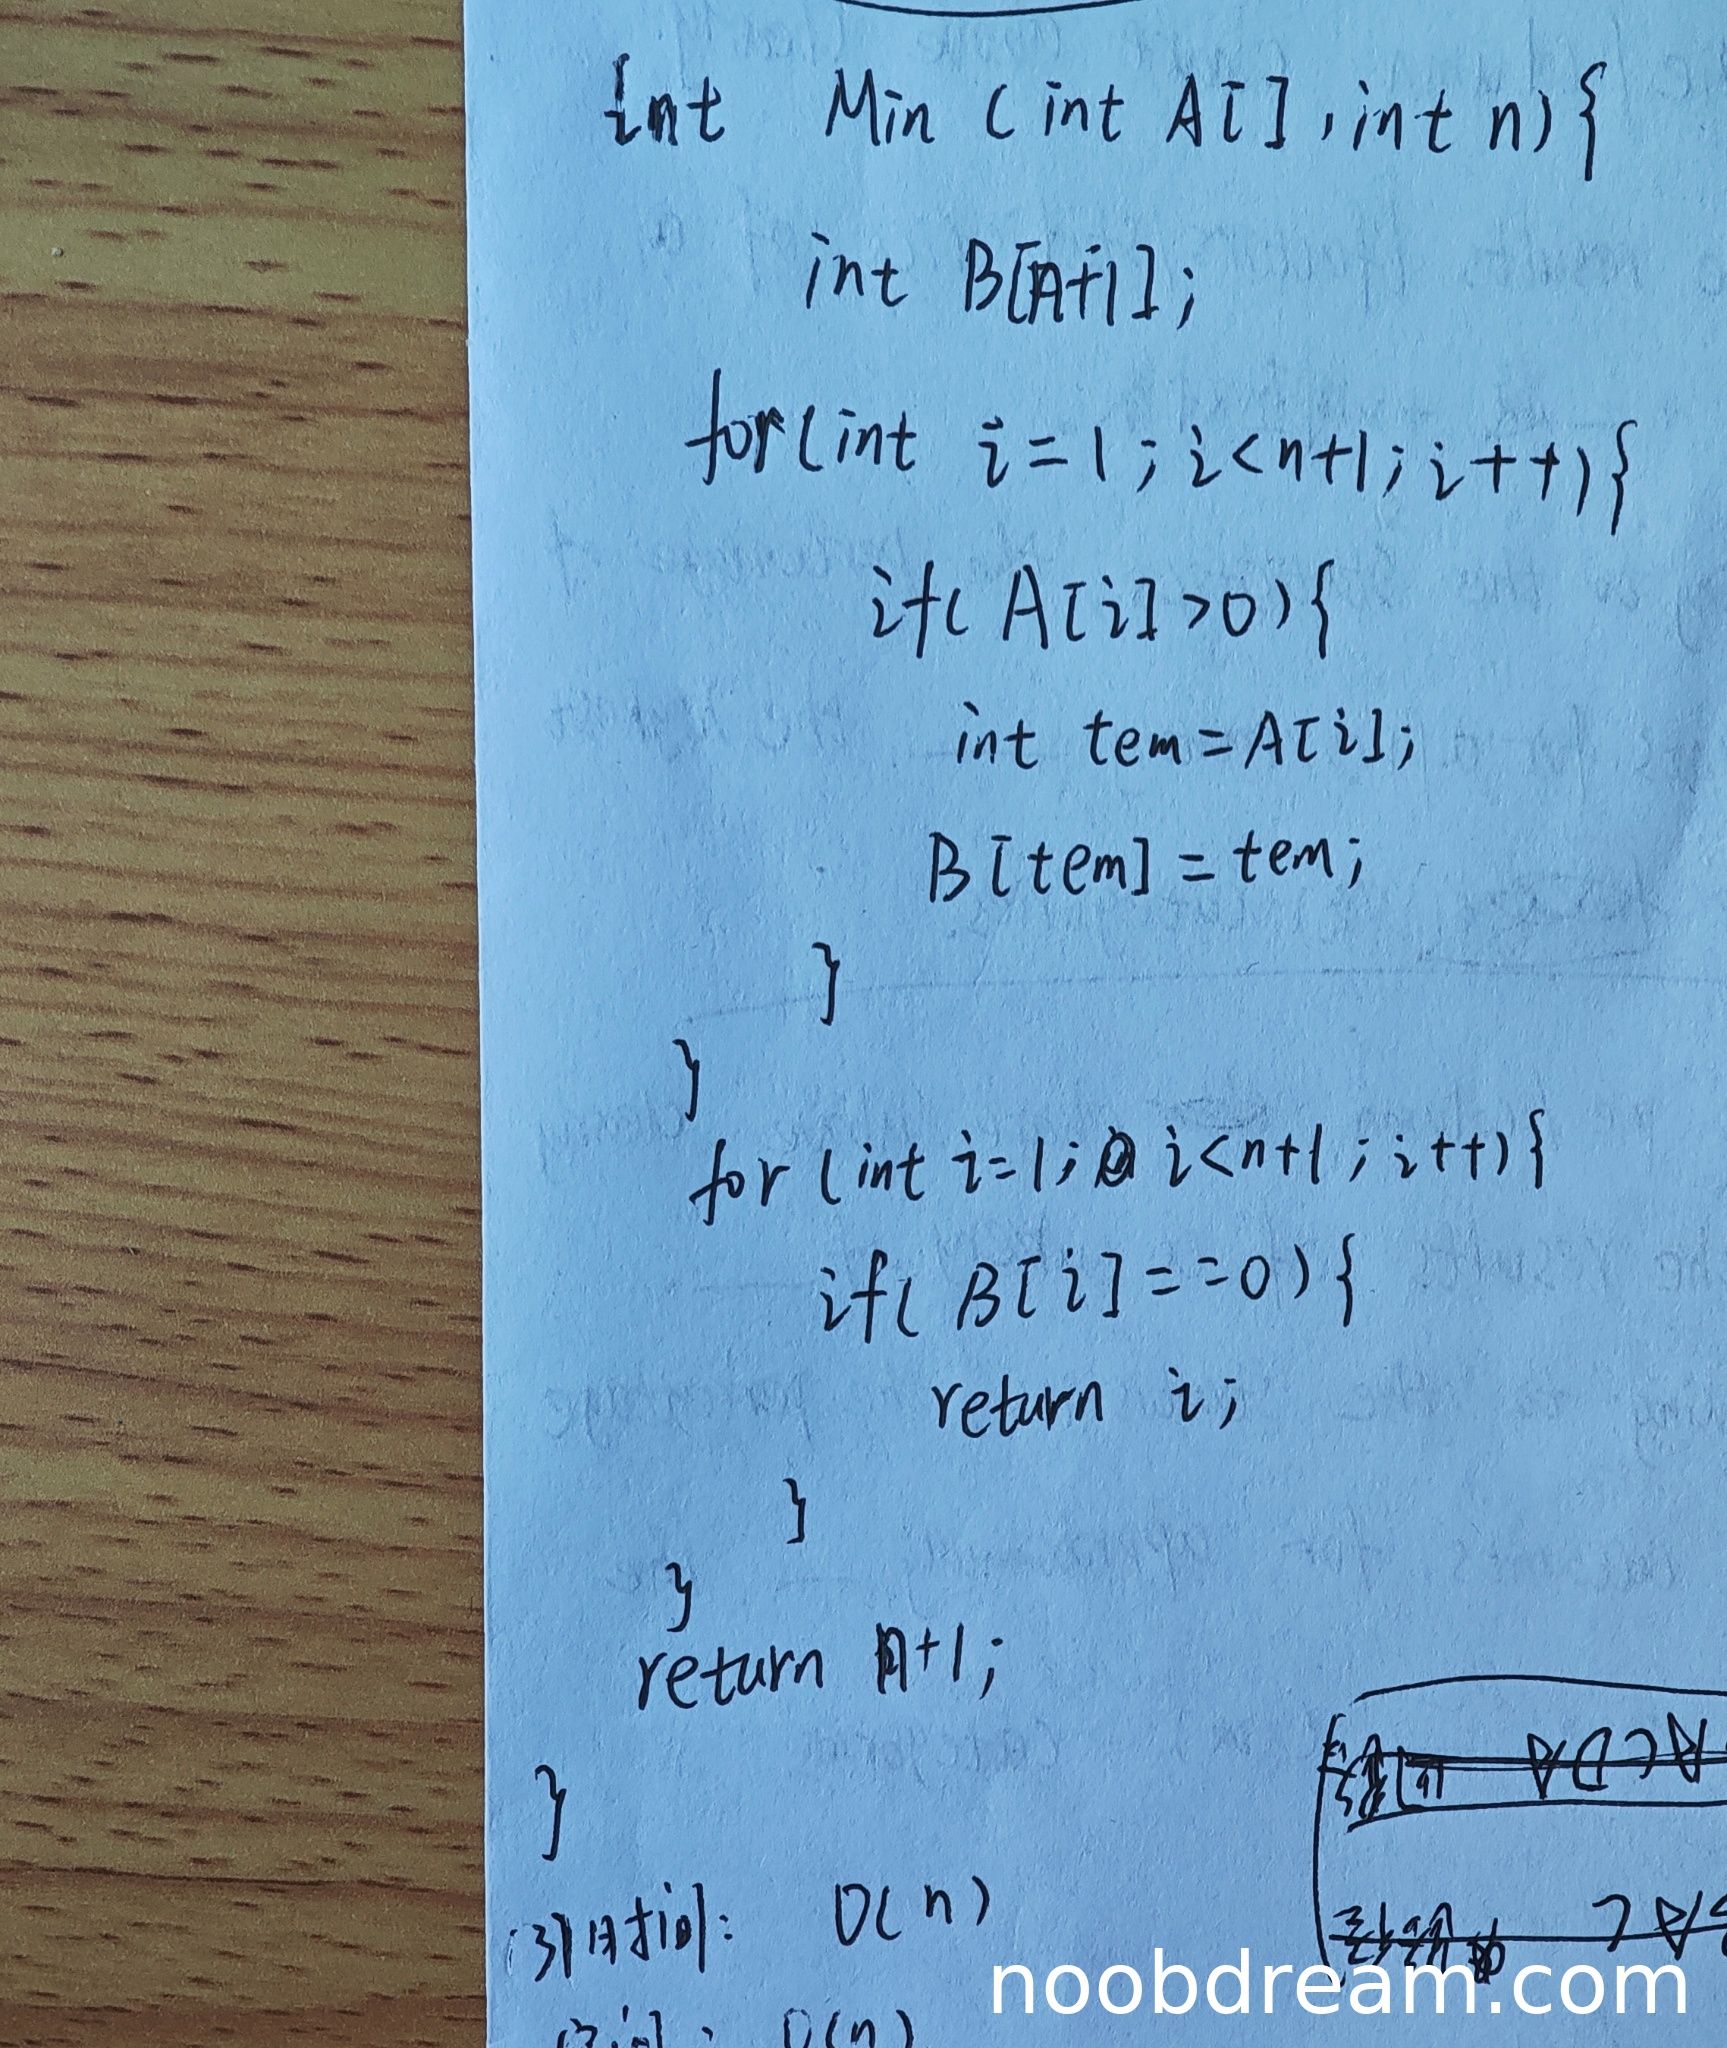 int Min (int A[], int n){
int B[n+1];
for(int i=1; i<n+1; i++){
if( A[i]>0){
int tem=A[i];
B[tem]=tem;
}
}
for (int i=1; i<n+1; i++){
if( B[i]==0){
return i;
}
}
return n+1;
}
(3)时间: O(n)
空间: O(n)
noobdream.com